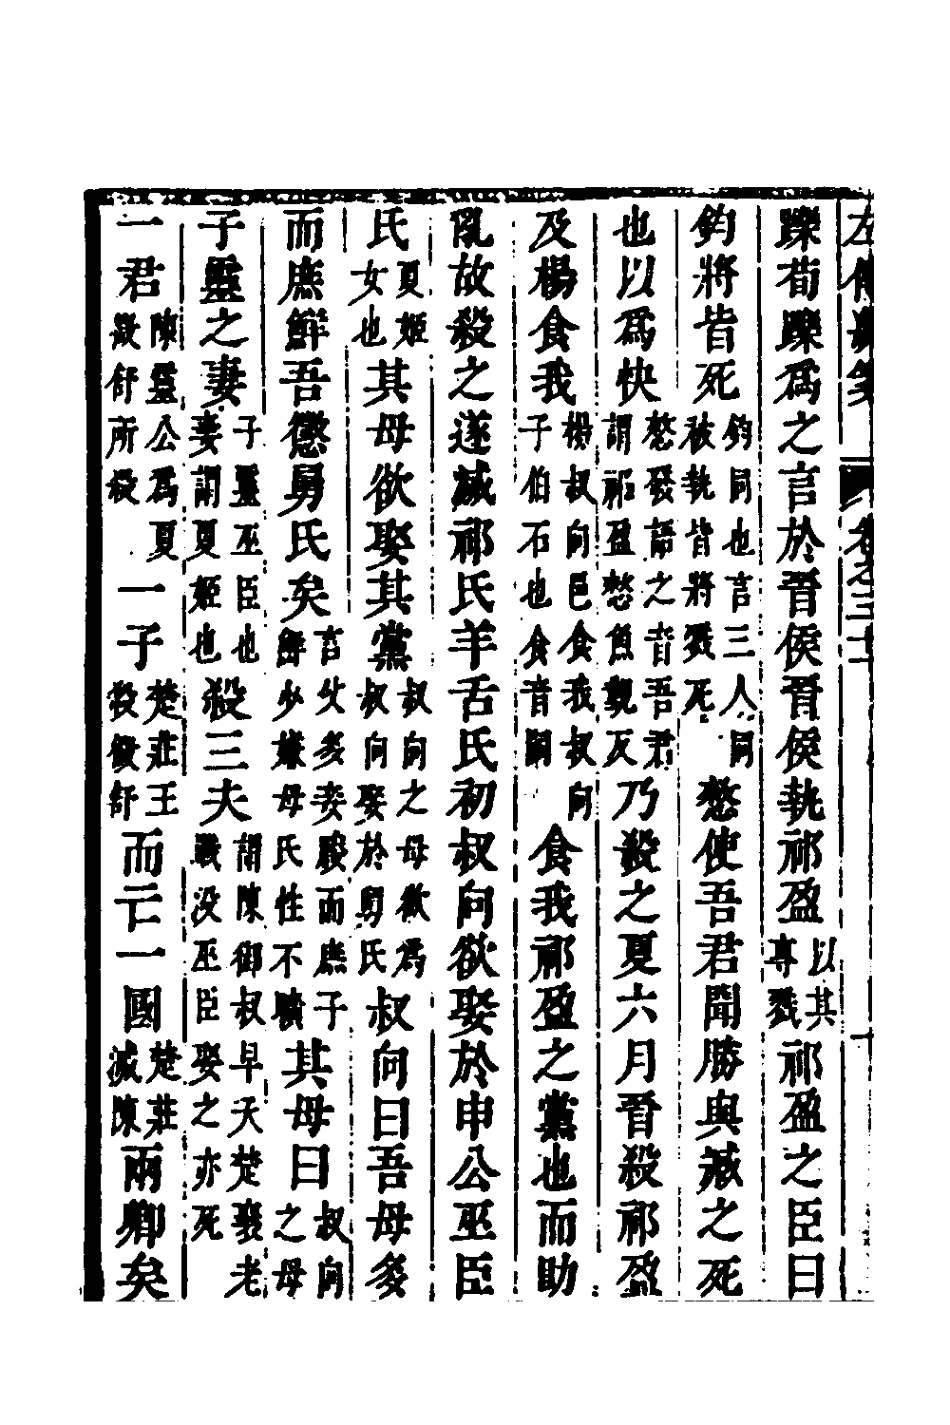 左傳
卷之二十
躒荀躒爲之言於晉侯晉侯執祁盈以其專戮祁盈之臣曰
鈞將皆死鈞同也言三人同被執皆將戮死憖使吾君聞勝與臧之死
也以爲快憖發語之音吾君謂祁盈憖魚覲反乃殺之夏六月晉殺祁盈
及楊食我楊叔向邑食我叔向子伯石也食音嗣食我祁盈之黨也而助
亂故殺之遂滅祁氏羊舌氏初叔向欲娶於申公巫臣
氏夏姬女也其母欲娶其黨叔向之母欲爲叔向娶於舅氏叔向曰吾母多
而庶鮮吾懲舅氏矣言父多妾媵而庶子鮮少嫌母氏性不曠其母曰叔向之母
子靈之妻子靈巫臣也妻謂夏姬也殺三夫謂陳御叔早夭楚襄老戰没巫臣娶之亦死
一君陳靈公爲夏徵舒所殺一子楚莊王殺徵舒而亡一國楚莊滅陳兩卿矣